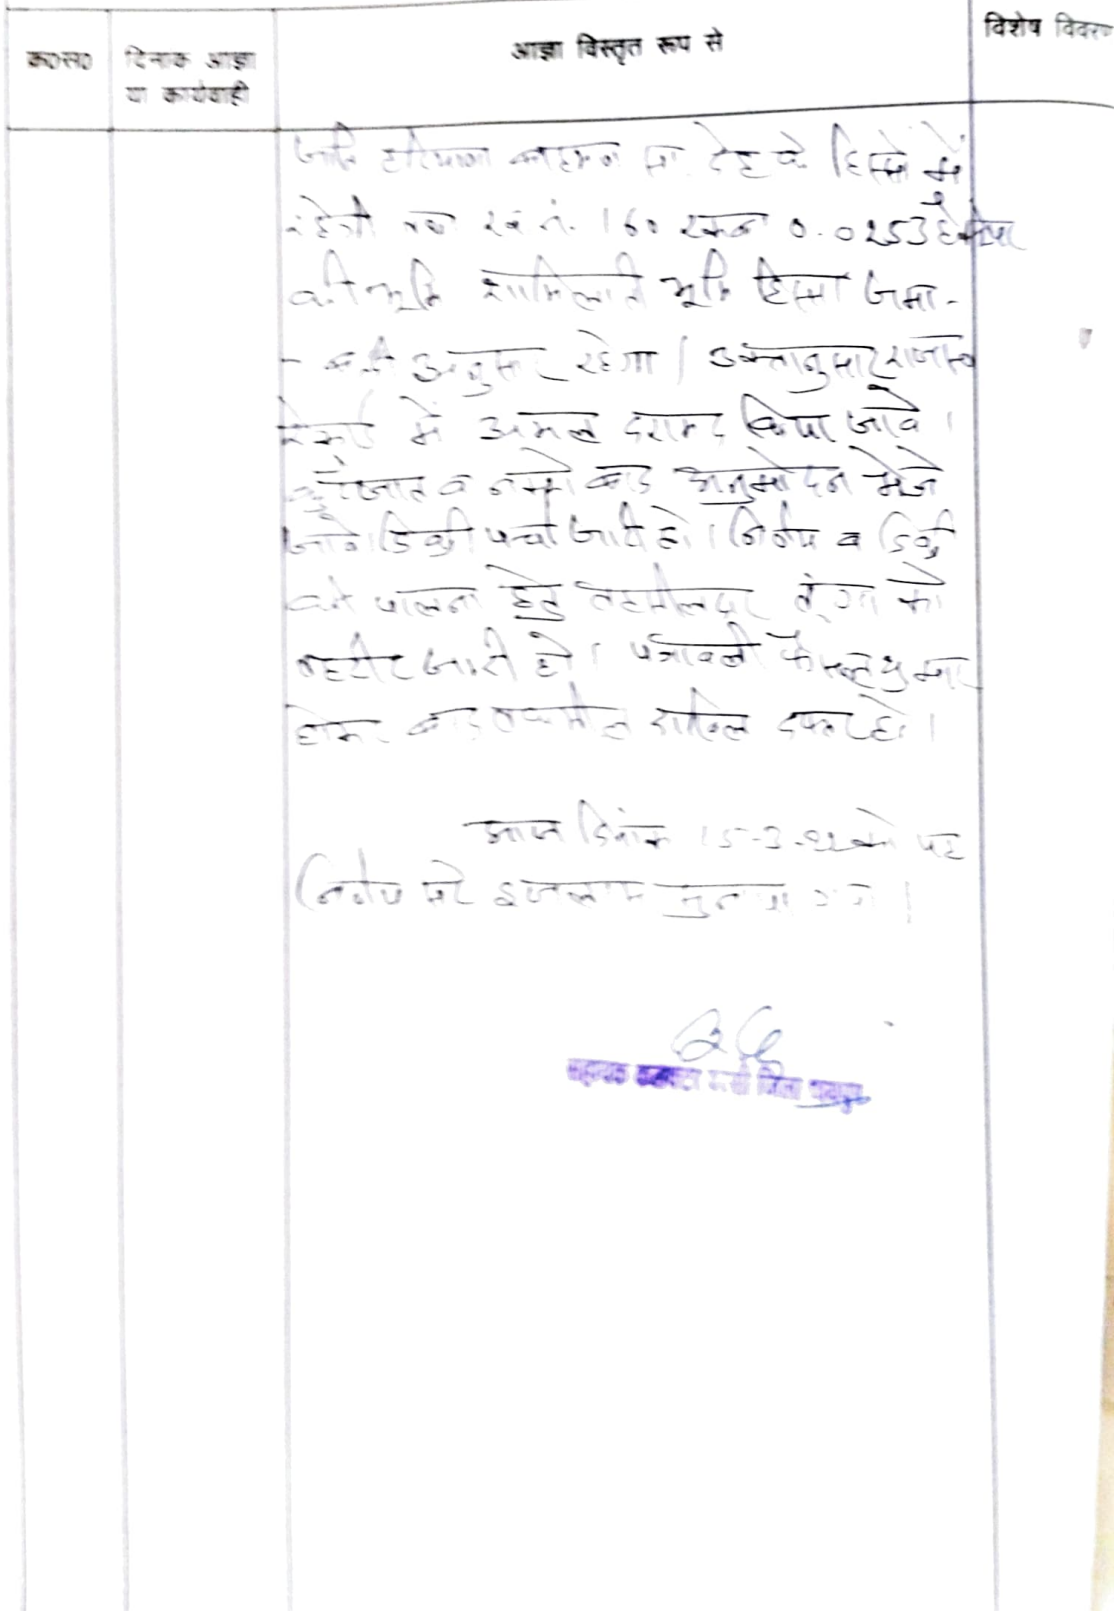 क०स०
दिनाक आज्ञा
या कार्यवाही
आज्ञा विस्तृत रूप से
विशेष विवरण
जाति हरियाणा ब्राहमण सा. देह के हिस्से में
रहेगी तथा ख.नं. 160 रकबा 0.0253 हैक्टेयर
की भूमि शामिलाती भूमि हिस्सा जमा-
- बन्दी अनुसार रहेगा। उक्तानुसार राजस्व
रेकार्ड में अमल दरामद किया जावे।
कुर्रेजात व नक्शे बाद अनुमोदन भेजे
जावे। डिक्री पर्चा जारी हो। निर्णय व डिक्री
की पालना हेतु तहसीलदार तूंगा को
तहरीर जारी हो। पत्रावली फैसल शुमार
होकर बाद तकमील दाखिल दफ्तर हो।
आज दिनांक 15-3-22 को यह
निर्णय सरे इजलास सुनाया गया।
सहायक कलक्टर बस्सी जिला जयपुर